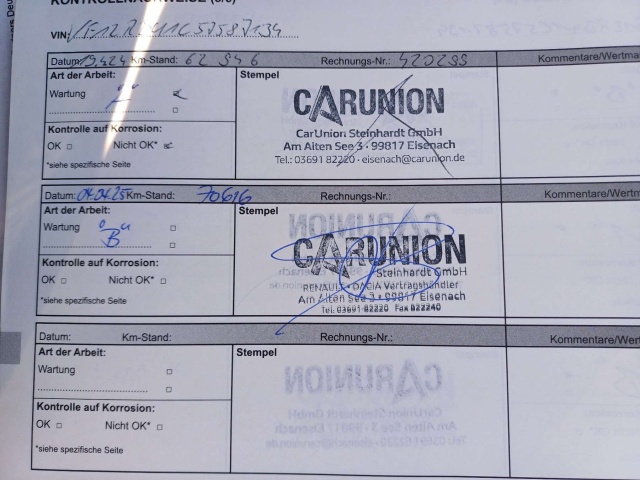 KONTROLLNACHWEISE
VIN:
Datum: Km-Stand: 62 946 Rechnungs-Nr.: 420299 Kommentare/Wertma
Art der Arbeit: Stempel
Wartung
CARUNION
CarUnion Steinhardt GmbH
Am Alten See 3 · 99817 Eisenach
Tel.: 03691 82220 · eisenach@carunion.de
Kontrolle auf Korrosion:
OK Nicht OK*
*siehe spezifische Seite
Datum: 04.04.25 Km-Stand: 70616 Rechnungs-Nr.: Kommentare/Wertma
Art der Arbeit: Stempel
Wartung
B
CARUNION
Steinhardt GmbH
RENAULT · DACIA Vertragshändler
Am Alten See 3 · 99817 Eisenach
Tel. 03691-82220 Fax 822240
Kontrolle auf Korrosion:
OK Nicht OK*
*siehe spezifische Seite
Datum: Km-Stand: Rechnungs-Nr.: Kommentare/Wert
Art der Arbeit: Stempel
Wartung
Kontrolle auf Korrosion:
OK Nicht OK*
*siehe spezifische Seite